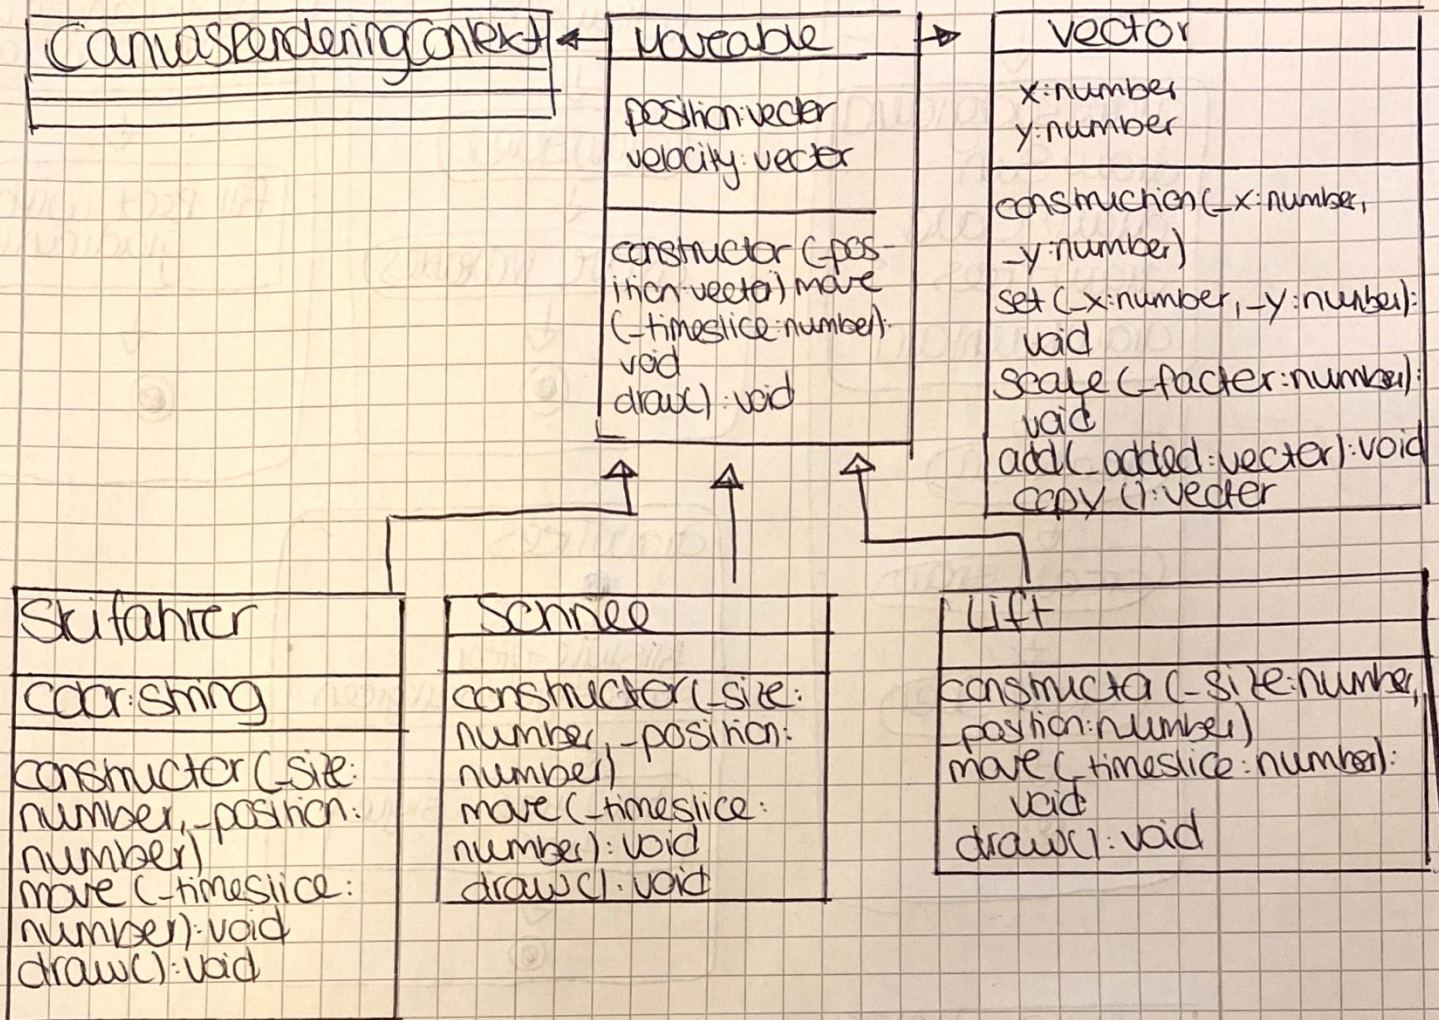 CanvasRenderingContext
Moveable
position:vector
velocity:vector
constructor (_pos-
ition:vector) move
(_timeslice:number):
void
draw() : void
vector
x:number
y:number
construction(_x:number,
_y:number)
set (_x:number, _y:number):
void
scale (_factor:number):
void
add(_added:vector):void
copy ():vector
Skifahrer
color:string
constructor (_size:
number, _position:
number)
move (_timeslice:
number):void
draw():void
Schnee
constructor(_size:
number, _position:
number)
move (_timeslice:
number): void
draw(): void
Lift
constructor (_size:number,
_position:number)
move (_timeslice:number):
void
draw(): void